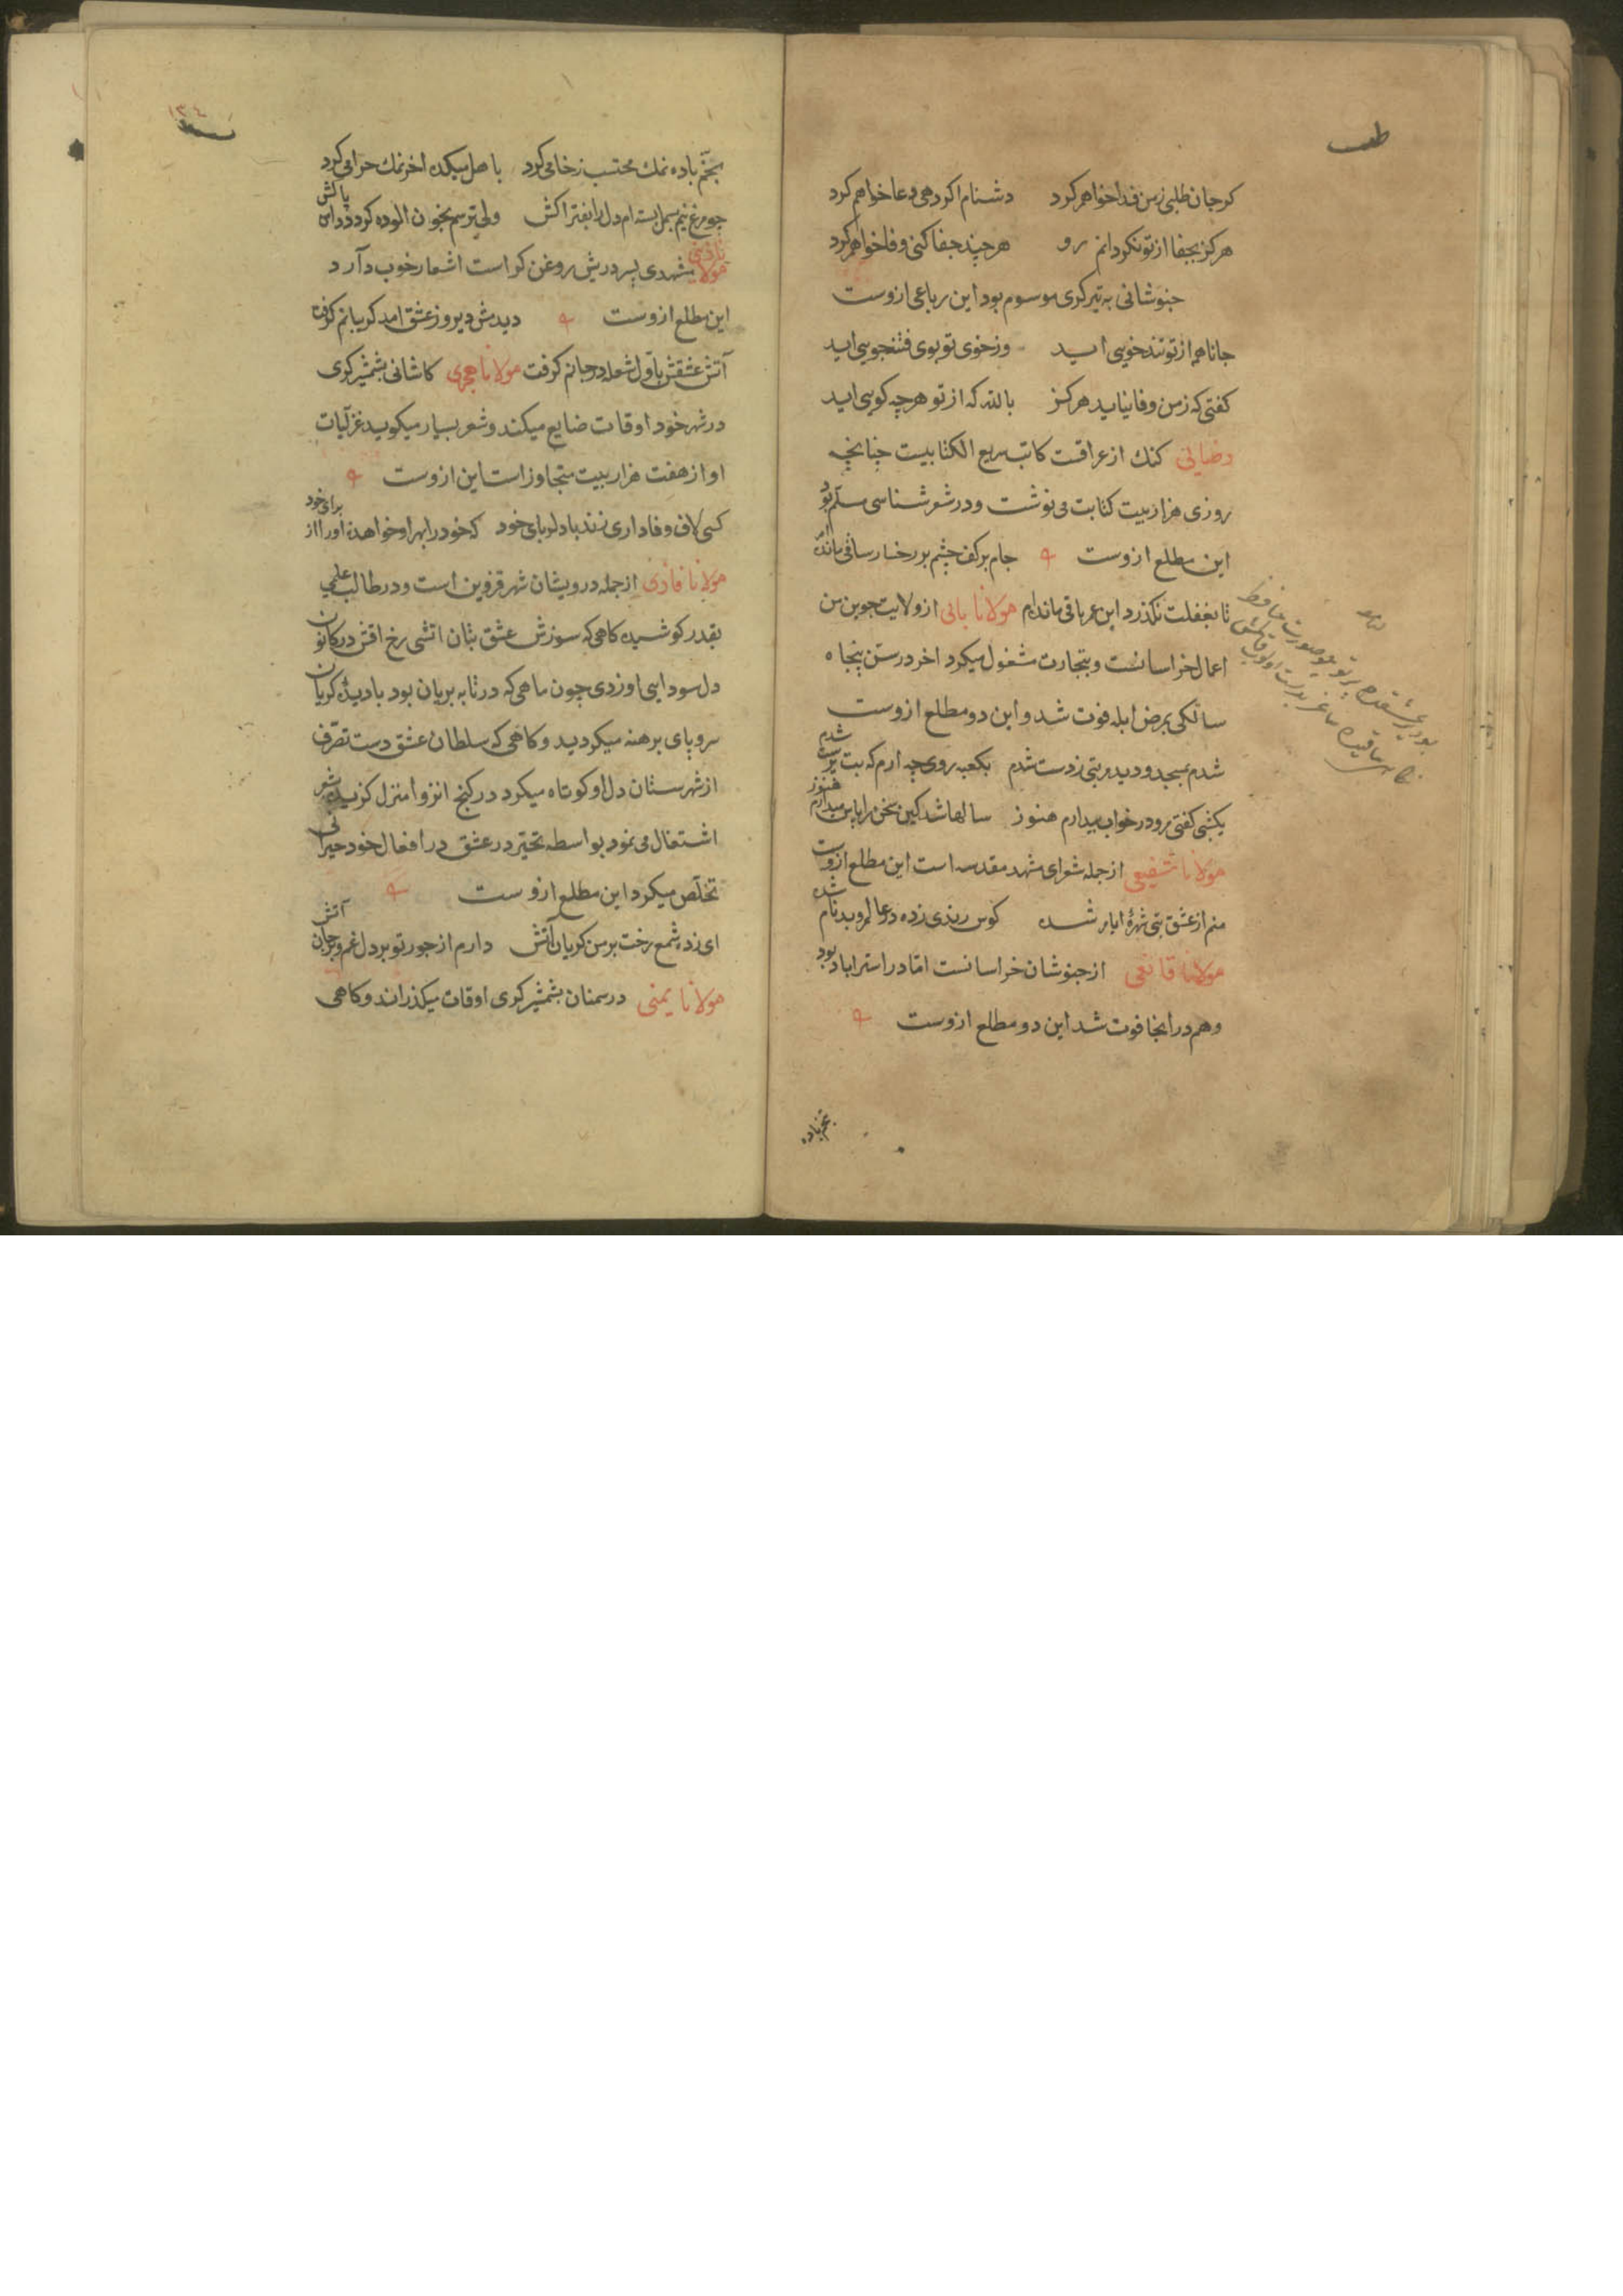 كر جان طلبی ز من فدا خواهم كرد دشنام اكر دهی دعا خواهم كرد
هركز بجفا از تو نكردانم رو هر چند جفا كنی وفا خواهم كرد
جنوشانی به تیركری موسوم بود این رباعی ازوست
جانا همه از تو تندخویی اید وز خوی تو بوی فتنه‌جویی اید
كفتی كه ز من وفا نیاید هركز بالله كه از تو هر چه كویی اید
رضایی كنك از عراقست كاتب سریع الكتابیست چنانچه
روزی هزار بیت كتابت می نوشت و در شعر شناسی مسلم بود
این مطلع ازوست جام بر كف چشم بر رخسار ساقی مانده‌ام
تا بغفلت نكذرد این عمر باقی مانده‌ام مولانا یانی از ولایت جوین من
اعمال خراسانست و بتجارت مشغول میكرد اخر در سن پنجاه
سالكی بمرض ابله فوت شد و این دو مطلع ازوست
شدم بمسجد و دیدم بتی ز دست شدم بكعبه روی چه ارم كه بت پرست شدم
یكشبی كفتی برو در خواب بیدارم هنوز سالها شد كین سخن را پاس میدارم هنوز
مولانا شفیعی از جمله شعرای مشهد مقدسه است این مطلع ازوست
منم از عشق بتی شهرهٔ ایام شده كوس رندی زده در عالم و بدنام شده
مولانا قانعی از جنوشان خراسانست اما در استراباد بود
و هم در انجا فوت شد این دو مطلع ازوست
بخم باده
١٣٤
بخم باده نمك محتسب ز خامی كرد باهل میكده اخر نمك حرامی كرد
چو مرغ نیم بسمل بسته‌ام دل را بفتراكش ولی ترسم بخون الوده كردد دامن پاكش
مولانا نادری مشهدی پسر درویش روغن كر است اشعار خوب دارد
این مطلع ازوست دیدمش دیروز عشق امد كریبانم كرفت
آتش عشقش باول شعله در جانم كرفت مولانا هجری كاشانی بشمشیر كری
در شهر خود اوقات ضایع میكند و شعر بسیار میكوید غزلیات
او از هفت هزار بیت متجاوز است این ازوست
كسی لاف وفاداری زند با دلربای خود كه خود را بهر او خواهد نه او را از برای خود
مولانا فادی از جمله درویشان شهر قزوین است و در طالب علمی
بقدر كوشیده كاهی كه سوزش عشق بتان اتشی رخ افتش در كانون
دل سودایی او زدی چون ماهی كه در تابه بریان بود با دیدهٔ كریان
سر و پای برهنه میكردید و كاهی كه سلطان عشق دست تصرف
از شهرستان دل او كوتاه میكرد در كنج انزوا منزل كزیده بشعر
اشتغال می نمود بواسطه تحیر در عشق در افعال خود حیرانی
تخلص میكرد این مطلع ازوست
ای زده شمع رخت بر من كریان آتش دارم از جور تو بر دل غم و بر جان آتش
مولانا یمنی در سمنان بشمشیر كری اوقات میكذراند و كاهی